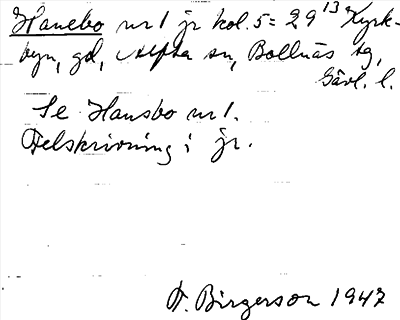 Hanebo nr 1 jr kol. 5 = 29¹³ Kyrk-
byn, gd, Alfta sn, Bollnäs tg,
Gävl. l.
Se Hansbo nr 1.
Felskrivning i jr.
F. Birgerson 1947